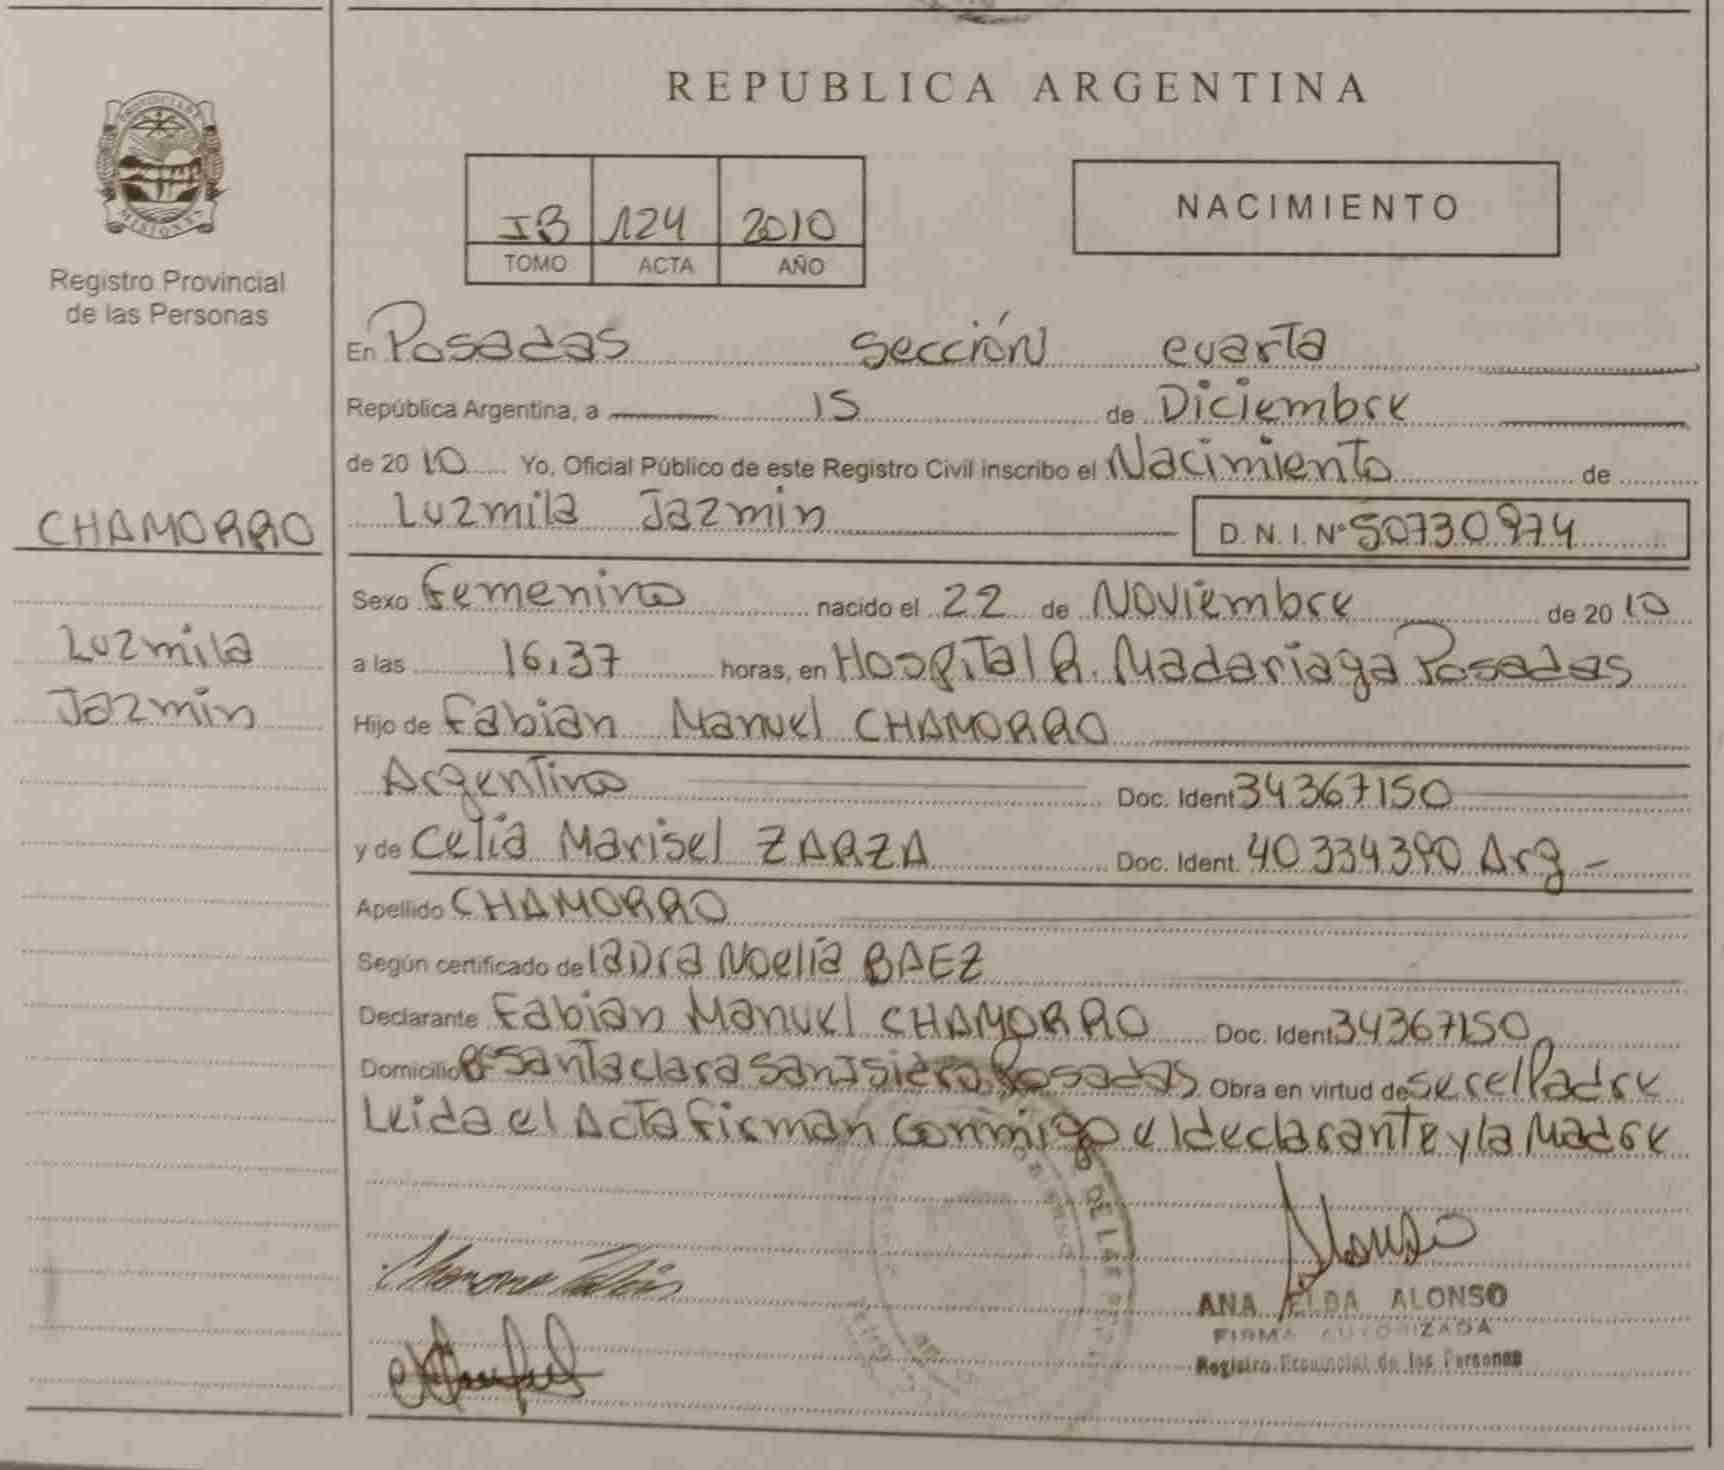 REPUBLICA ARGENTINA
PROVINCIA DE
MISIONES
Registro Provincial
de las Personas
IB 124 2010
TOMO ACTA AÑO
NACIMIENTO
En Posadas sección cuarta
República Argentina, a 15 de Diciembre
de 2010 Yo, Oficial Público de este Registro Civil inscribo el Nacimiento de
CHAMORRO
Luzmila Jazmin D. N. I. Nº 50730974
Sexo Femenino nacido el 22 de Noviembre de 2010
Luzmila
a las 16,37 horas, en Hospital R. Madariaga Posadas
Jazmin
Hijo de Fabian Manuel CHAMORRO
Argentino Doc. Ident 34367150
y de Celia Marisel ZARZA Doc. Ident. 40.334.390 Arg -
Apellido CHAMORRO
Según certificado de la Dra Noelia BAEZ
Declarante Fabian Manuel CHAMORRO Doc. Ident 34367150
Domicilio Bº Santa clara San Isidro Posadas Obra en virtud de ser el Padre
Leida el Acta firman conmigo el declarante y la Madre
DE LAS
Chamorro Fabian
Alonso
ANA ELDA ALONSO
FIRMA AUTORIZADA
Registro Provincial de las Personas